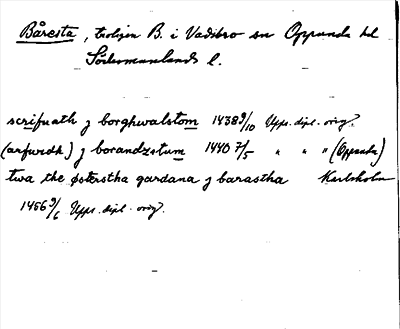 Båresta, troligen B. i Vadsbro sn Oppunda hd
Södermanlands l.
scrifuath ȝ borghwalstom 1438 9/10 Upps. dipl. orig.
(arfwidh) ȝ borandzstum 1440 7/5 " " " (Oppunda)
twa the østerstha gardana ȝ barastha Karlsholm
1456 9/6 Upps. dipl. orig.